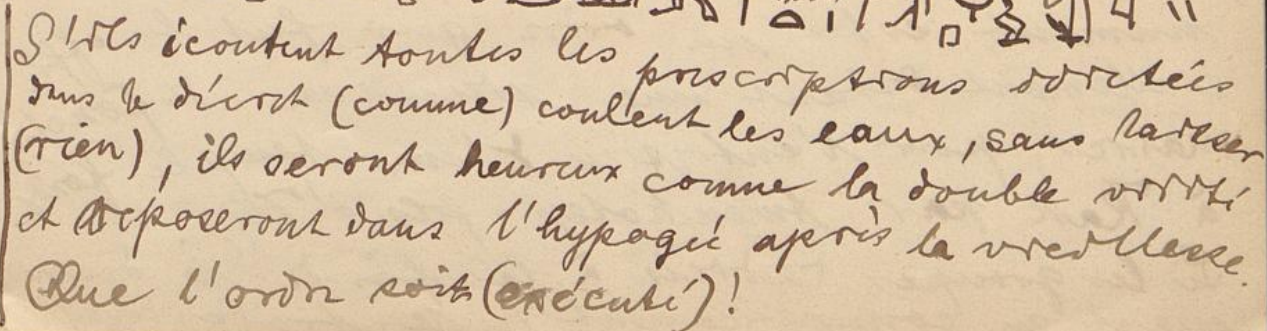 S'ils écoutent toutes les prescriptions édictées
dans le décret (comme) coulent les eaux, sans laisser
(rien), ils seront heureux comme la double vérité
et reposeront dans l'hypogée après la vieillesse.
Que l'ordre soit (exécuté)!